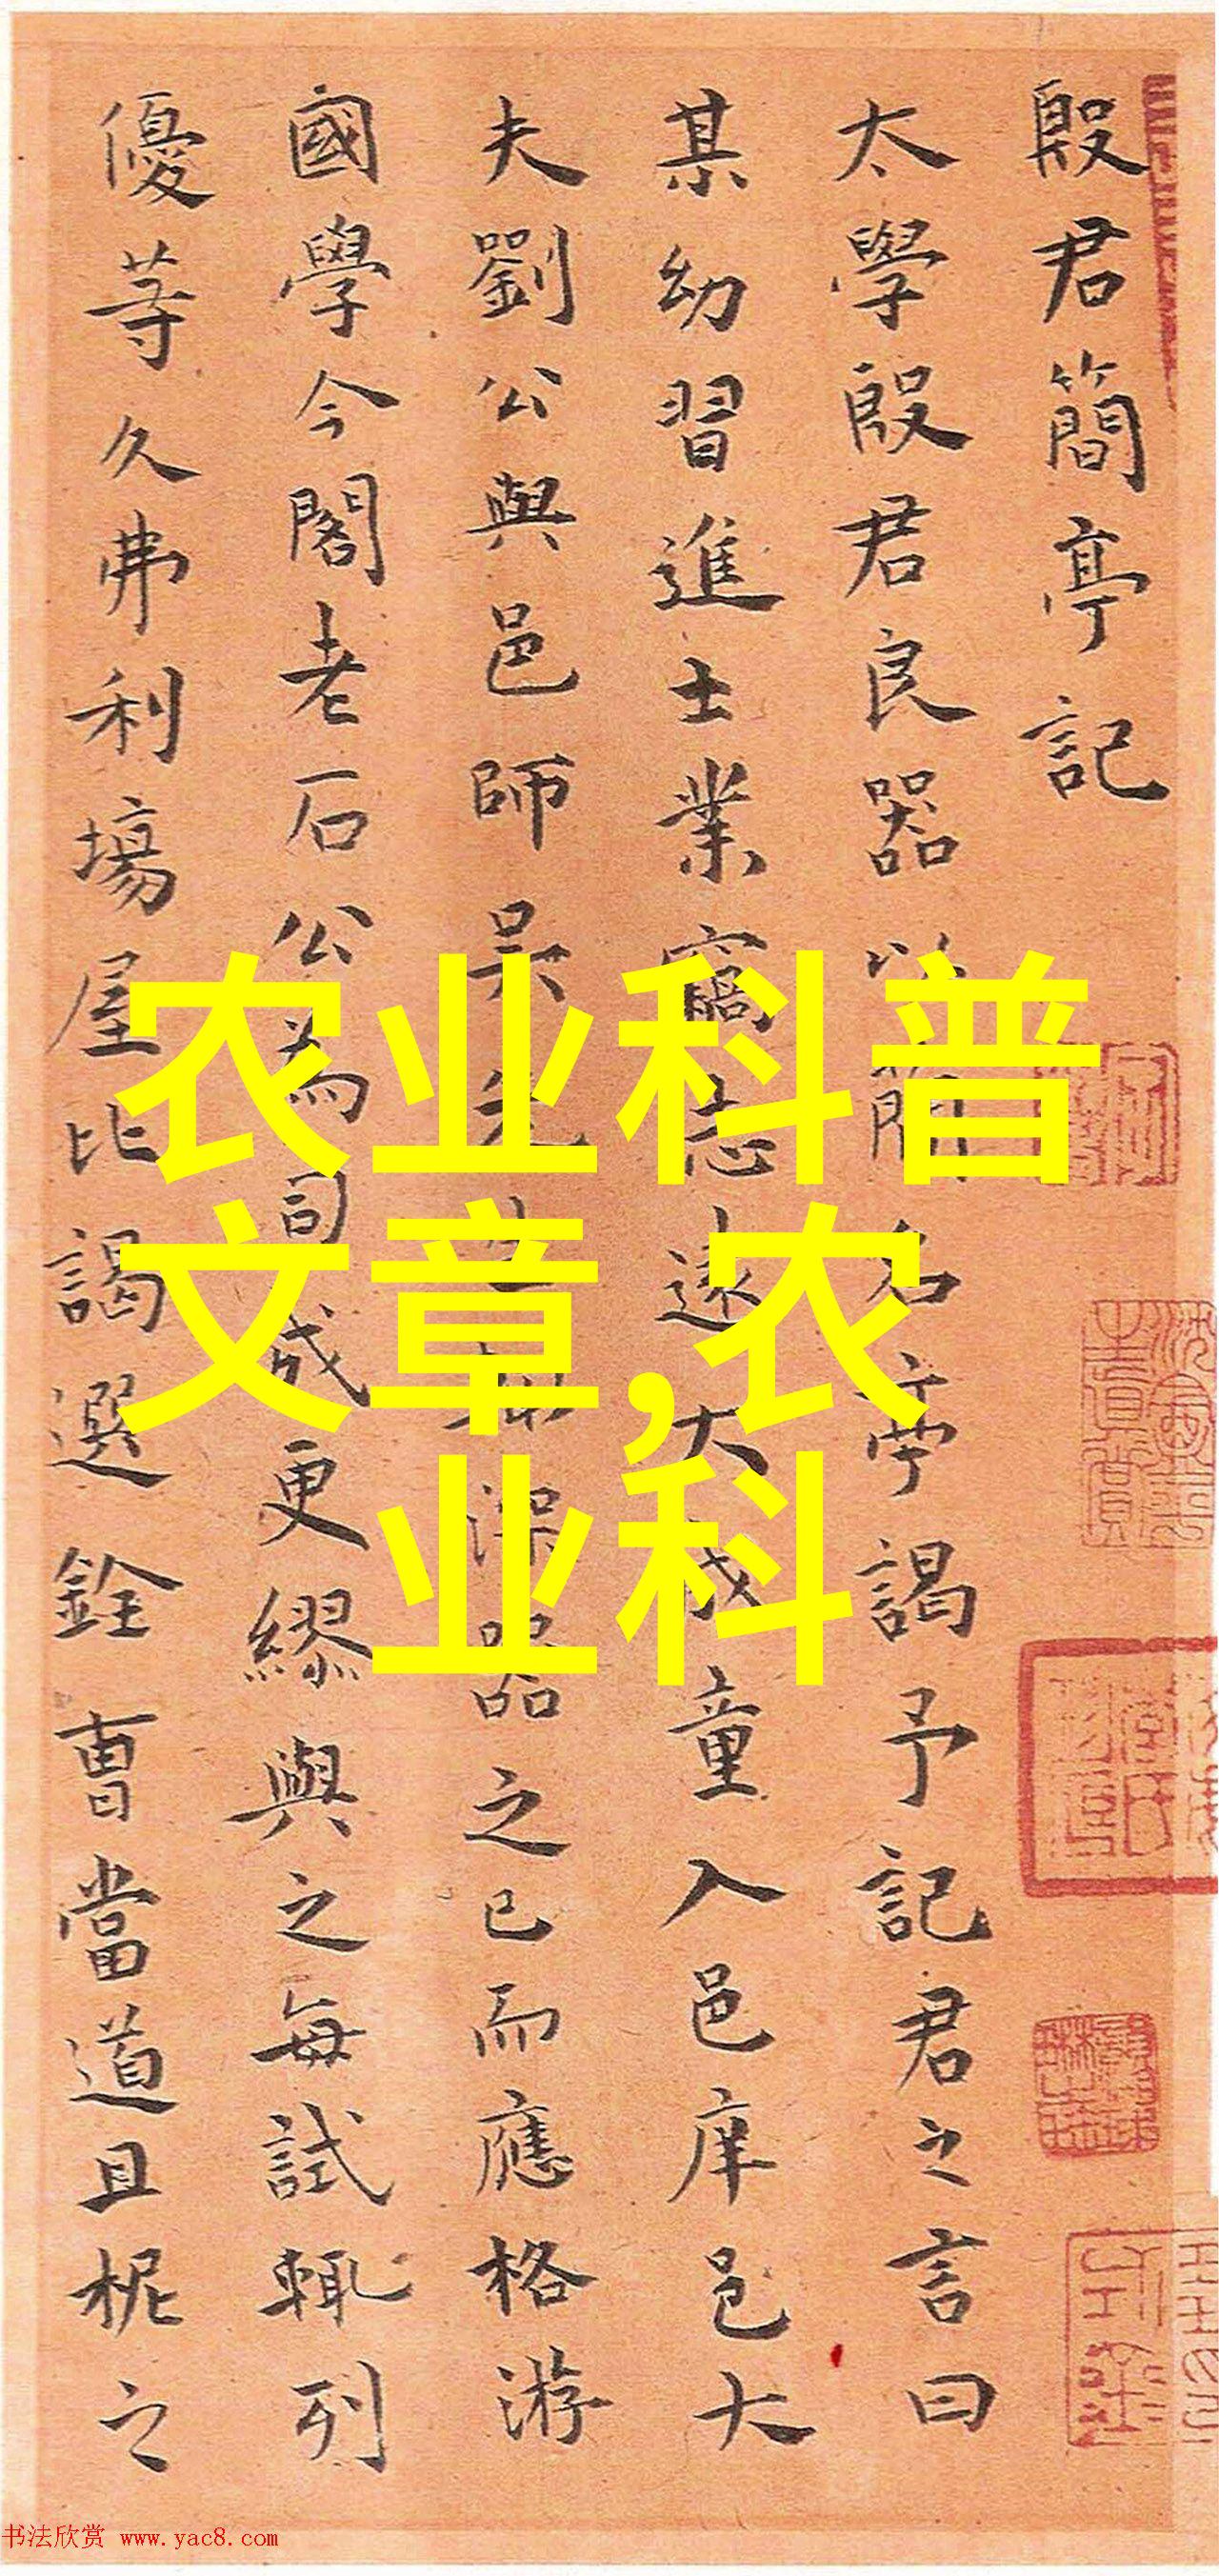 殷君簡亭記
太學殷君良器以簡名亭謁予記君之言曰
某幼習進士業竊志遠大成童入邑庠邑大
夫劉公與邑師吳先生深器之已而應格游
國學今閣老石公為司成更繆與之每試輒列
優等久弗利場屋比謁選銓曹當道且柅之
农业科普
文章,农
业科
书法欣赏 www.yac8.com